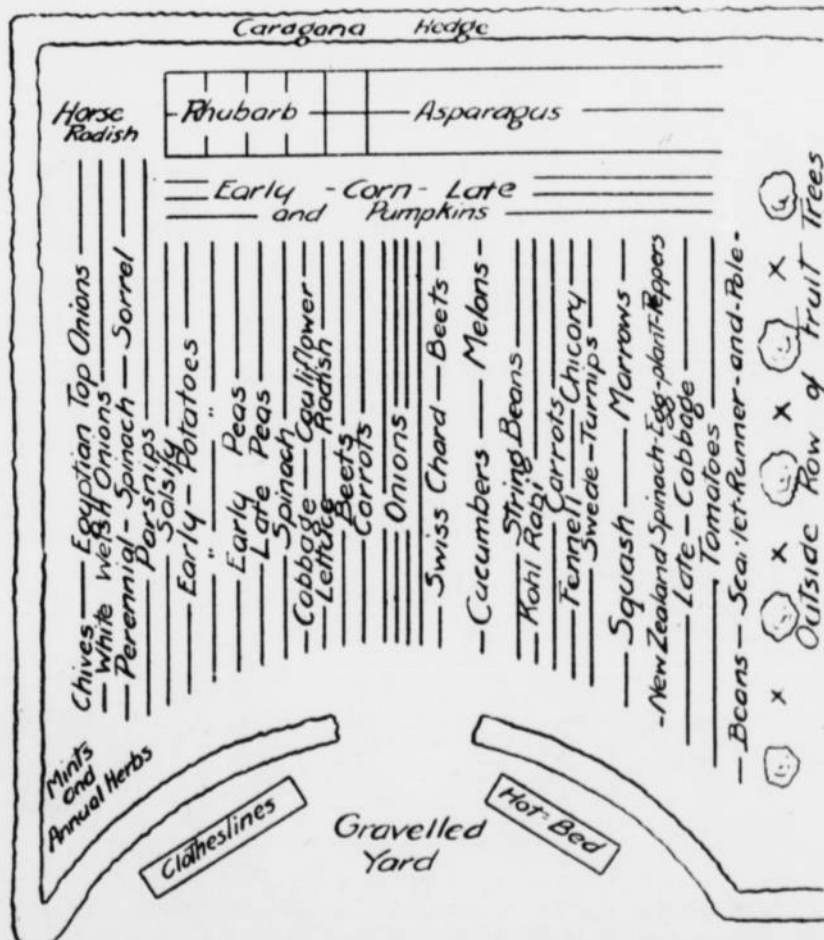 Caragana Hedge
Horse
Radish
Rhubarb
Asparagus
Early - Corn - Late
and Pumpkins
Chives — Egyptian Top Onions
White Welsh Onions
Perennial - Spinach — Sorrel
Parsnips
Salsify
Early - Potatoes
" "
Early Peas
Late Peas
Spinach
Cabbage — Cauliflower
Lettuce Radish
Beets
Carrots
Onions
Swiss Chard — Beets
Cucumbers — Melons
String Beans
Kohl Rabi
Carrots
Fennell Chicory
Swede - Turnips
Squash — Marrows
New Zealand Spinach - Egg-plant - Peppers
Late - Cabbage
Tomatoes
Beans — Scarlet - Runner - and - Pole
Outside Row of Fruit Trees
Mints
and
Annual Herbs
Clotheslines
Gravelled
Yard
Hot-Bed